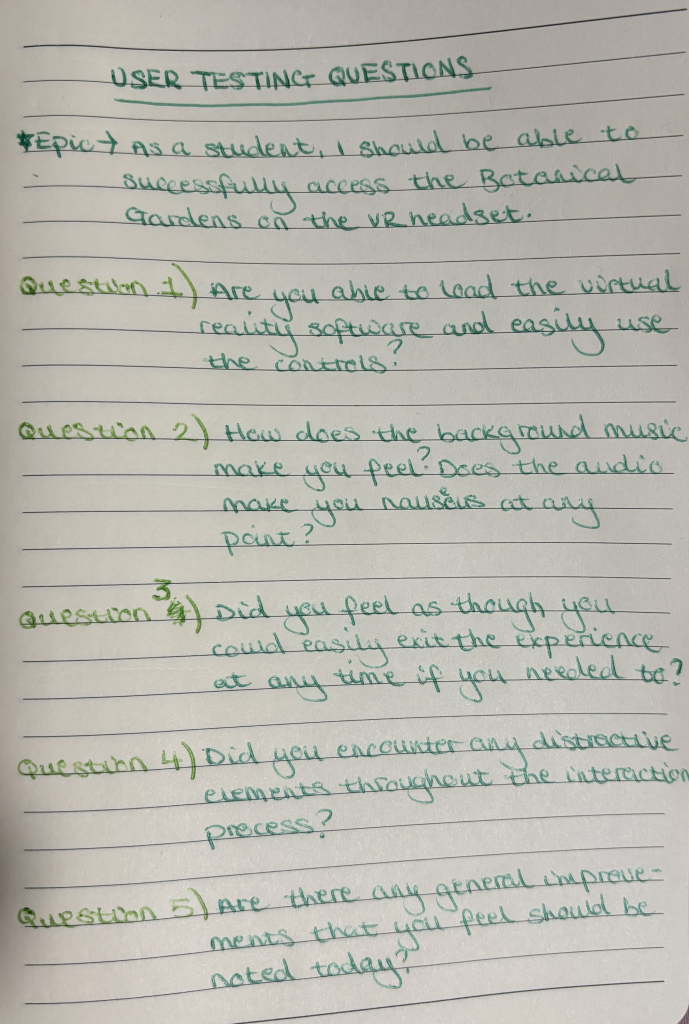 USER TESTING QUESTIONS
*Epic → As a student, I should be able to
successfully access the Botanical
Gardens on the VR headset.
Question 1) Are you able to load the virtual
reality software and easily use
the controls?
Question 2) How does the background music
make you feel? Does the audio
make you nauseus at any
point?
Question 3) Did you feel as though you
could easily exit the experience
at any time if you needed to?
Question 4) Did you encounter any distractive
elements throughout the interaction
process?
Question 5) Are there any general improve-
ments that you feel should be
noted today?